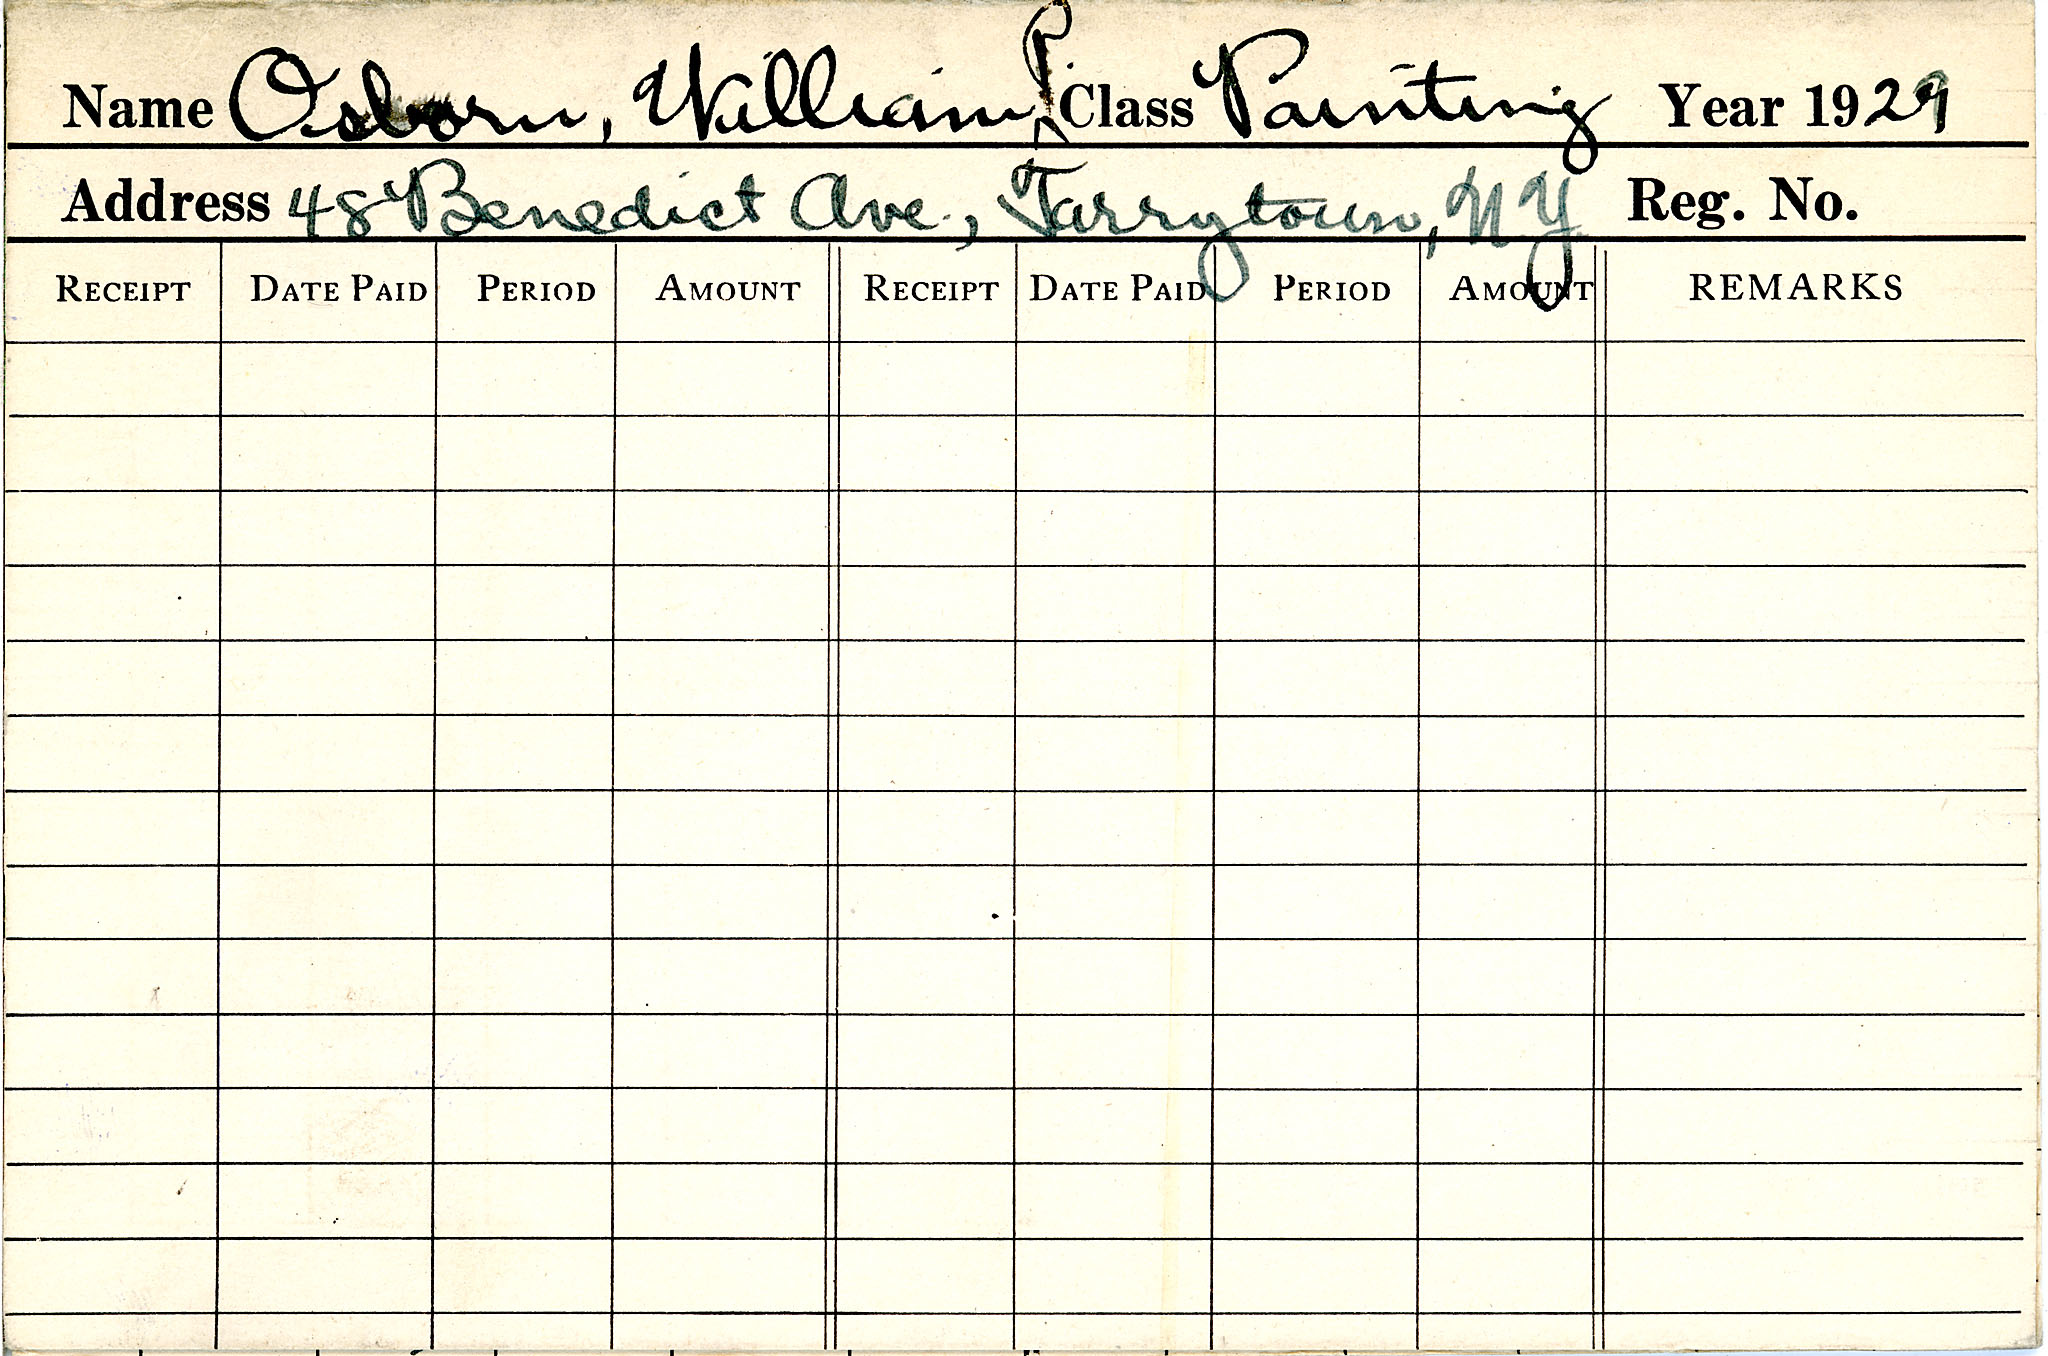 Name Osborn, William P. Class Painting Year 1929
Address 48 Benedict Ave., Tarrytown, N.Y. Reg. No.
RECEIPT DATE PAID PERIOD AMOUNT RECEIPT DATE PAID PERIOD AMOUNT REMARKS